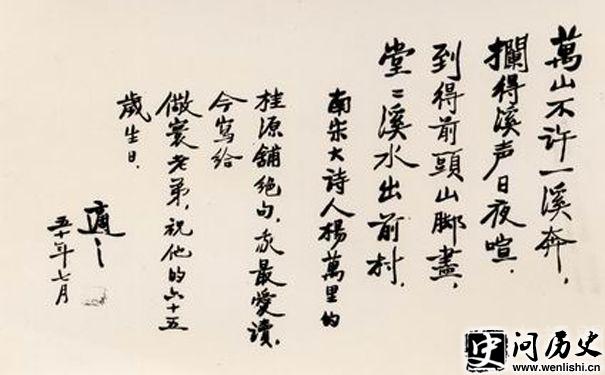 萬山不许一溪奔，
攔得溪声日夜喧．
到得前頭山脚盡，
堂〻溪水出前村．
南宋大詩人楊萬里的
桂源舖絶句，我最愛讀，
今寫给
儆寰老弟，祝他的六十五
歲生日．
適之
五十年七月
史问历史
www.wenlishi.cn